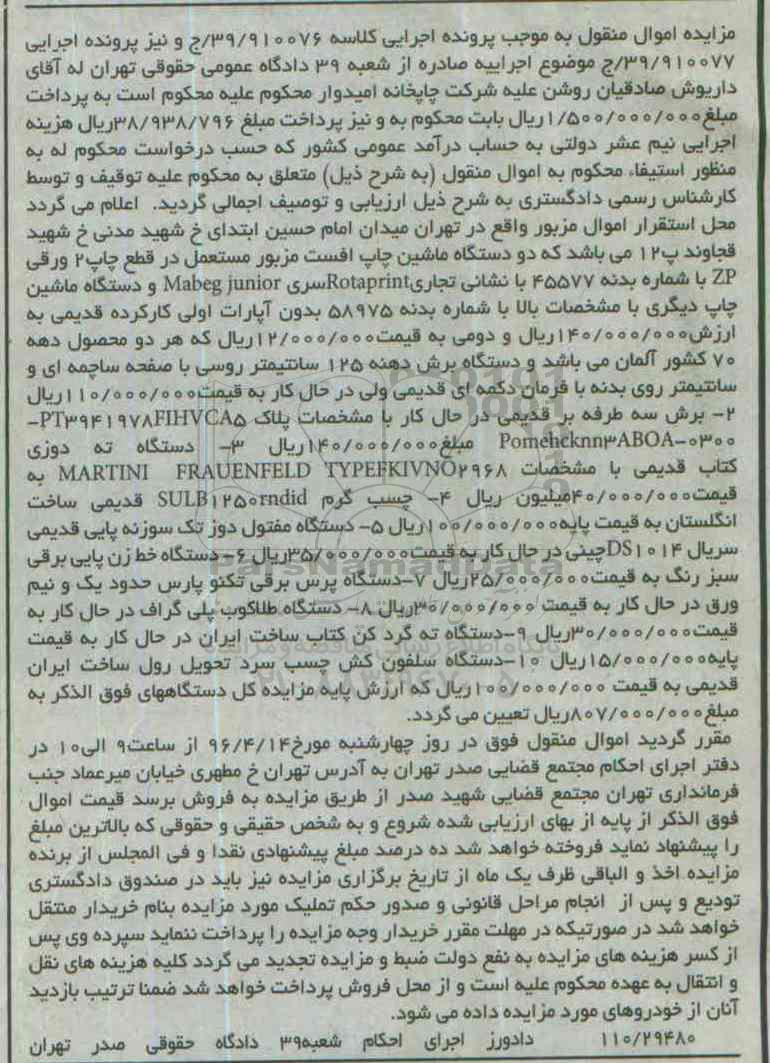 مزایده اموال منقول به موجب پرونده اجرایی کلاسه ۳۹/۹۱۰۰۷۶/ج و نیز پرونده اجرایی
۳۹/۹۱۰۰۷۷/ج موضوع اجراییه صادره از شعبه ۳۹ دادگاه عمومی حقوقی تهران له آقای
داریوش صادقیان روشن علیه شرکت چاپخانه امیدوار محکوم علیه محکوم است به پرداخت
مبلغ۱/۵۰۰/۰۰۰/۰۰۰ریال بابت محکوم به و نیز پرداخت مبلغ ۳۸/۹۳۸/۷۹۶ریال هزینه
اجرایی نیم عشر دولتی به حساب درآمد عمومی کشور که حسب درخواست محکوم له به
منظور استیفاء محکوم به اموال منقول (به شرح ذیل) متعلق به محکوم علیه توقیف و توسط
کارشناس رسمی دادگستری به شرح ذیل ارزیابی و توصیف اجمالی گردید. اعلام می گردد
محل استقرار اموال مزبور واقع در تهران میدان امام حسین ابتدای خ شهید مدنی خ شهید
قجاوند پ۱۲ می باشد که دو دستگاه ماشین چاپ افست مزبور مستعمل در قطع چاپ۲ ورقی
ZP با شماره بدنه ۴۵۵۷۷ با نشانی تجاریRotaprintسری Mabeg junior و دستگاه ماشین
چاپ دیگری با مشخصات بالا با شماره بدنه ۵۸۹۷۵ بدون آپارات اولی کارکرده قدیمی به
ارزش۱۴۰/۰۰۰/۰۰۰ریال و دومی به قیمت۱۲/۰۰۰/۰۰۰ریال که هر دو محصول دهه
۷۰ کشور آلمان می باشد و دستگاه برش دهنه ۱۲۵ سانتیمتر روسی با صفحه ساچمه ای و
سانتیمتر روی بدنه با فرمان دکمه ای قدیمی ولی در حال کار به قیمت۱۱۰/۰۰۰/۰۰۰ریال
۲- برش سه طرفه بر قدیمی در حال کار با مشخصات پلاک PT۳۹۴۱۹۷۸FIHVCA۵-
Pomehcknn۳ABOA-۰۳۰۰ مبلغ۱۴۰/۰۰۰/۰۰۰ریال ۳- دستگاه ته دوزی
کتاب قدیمی با مشخصات MARTINI FRAUENFELD TYPEFKIVNO۲۹۶۸ به
قیمت۴۰/۰۰۰/۰۰۰میلیون ریال ۴- چسب گرم SULB۱۲۵۰rndid قدیمی ساخت
انگلستان به قیمت پایه۱۰۰/۰۰۰/۰۰۰ریال ۵- دستگاه مفتول دوز تک سوزنه پایی قدیمی
سریال DS۱۰۱۴چینی در حال کار به قیمت۳۵/۰۰۰/۰۰۰ریال ۶- دستگاه خط زن پایی برقی
سبز رنگ به قیمت۲۵/۰۰۰/۰۰۰ریال ۷-دستگاه پرس برقی تکنو پارس حدود یک و نیم
ورق در حال کار به قیمت ۳۰/۰۰۰/۰۰۰ریال ۸- دستگاه طلاکوب پلی گراف در حال کار به
قیمت۳۰/۰۰۰/۰۰۰ریال ۹-دستگاه ته گرد کن کتاب ساخت ایران در حال کار به قیمت
پایه۱۵/۰۰۰/۰۰۰ریال ۱۰-دستگاه سلفون کش چسب سرد تحویل رول ساخت ایران
قدیمی به قیمت ۱۰۰/۰۰۰/۰۰۰ریال که ارزش پایه مزایده کل دستگاههای فوق الذکر به
مبلغ۸۰۷/۰۰۰/۰۰۰ریال تعیین می گردد.
مقرر گردید اموال منقول فوق در روز چهارشنبه مورخ۹۶/۴/۱۴ از ساعت۹ الی۱۰ در
دفتر اجرای احکام مجتمع قضایی صدر تهران به آدرس تهران خ مطهری خیابان میرعماد جنب
فرمانداری تهران مجتمع قضایی شهید صدر از طریق مزایده به فروش برسد قیمت اموال
فوق الذکر از پایه از بهای ارزیابی شده شروع و به شخص حقیقی و حقوقی که بالاترین مبلغ
را پیشنهاد نماید فروخته خواهد شد ده درصد مبلغ پیشنهادی نقدا و فی المجلس از برنده
مزایده اخذ و الباقی ظرف یک ماه از تاریخ برگزاری مزایده نیز باید در صندوق دادگستری
تودیع و پس از انجام مراحل قانونی و صدور حکم تملیک مورد مزایده بنام خریدار منتقل
خواهد شد در صورتیکه در مهلت مقرر خریدار وجه مزایده را پرداخت ننماید سپرده وی پس
از کسر هزینه های مزایده به نفع دولت ضبط و مزایده تجدید می گردد کلیه هزینه های نقل
و انتقال به عهده محکوم علیه است و از محل فروش پرداخت خواهد شد ضمنا ترتیب بازدید
آنان از خودروهای مورد مزایده داده می شود.
۱۱۰/۲۹۴۸۰ دادورز اجرای احکام شعبه۳۹ دادگاه حقوقی صدر تهران
ParsNamadData